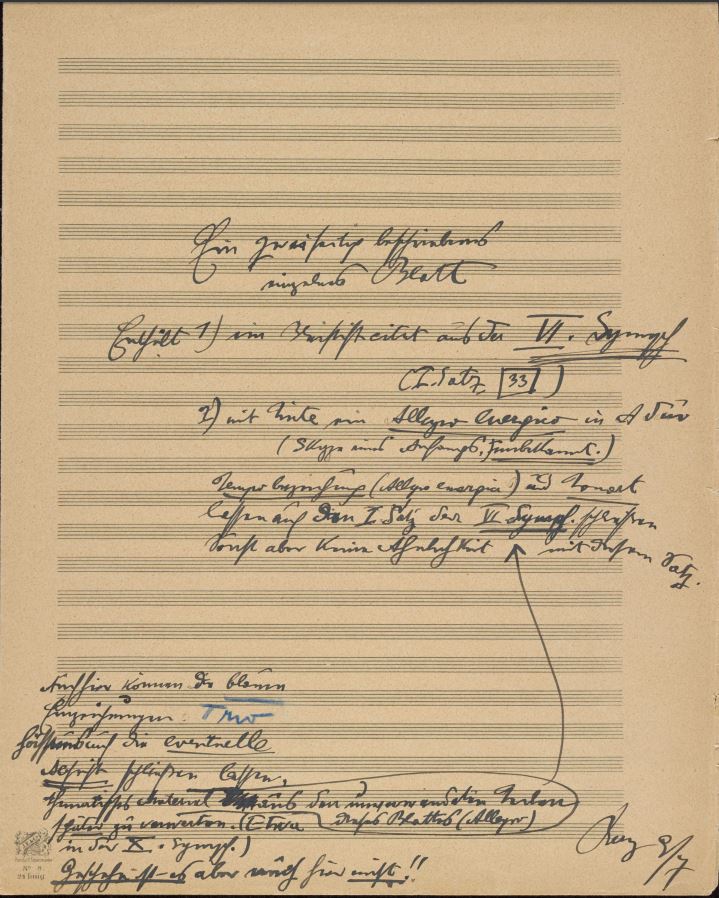 Ein zweiseitig beschriebenes
einzelnes Blatt
Enthält 1) ein citat aus der VI. Symph
(I. Satz, 33)
2) mit Tinte ein Allegro energico in A dur
(Skizze eines Anfangs, unbekannt.)
Tempobezeichung (Allegro energico) und Tonart
lassen auf den I. Satz der VI Symph. schließen
sonst aber keine Ähnlichkeit mit diesem Satz.
Auch hier können die blauen
Trio
auf die eventuelle
Absicht schließen lassen,
thematisches Material aus den unverwendeten
später zu verwerten. (Etwa dieses Blattes (Allegro)
in der X. Symph.)
Geschehen ist es aber auch hier nicht!!
9/7
No. 8.
24 linig